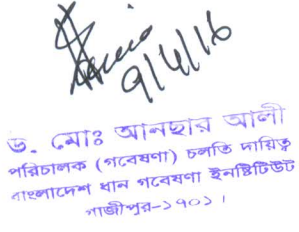 9/4/16
ড. মোঃ আনছার আলী
পরিচালক (গবেষণা) চলতি দায়িত্ব
বাংলাদেশ ধান গবেষণা ইনষ্টিটিউট
গাজীপুর-১৭০১।